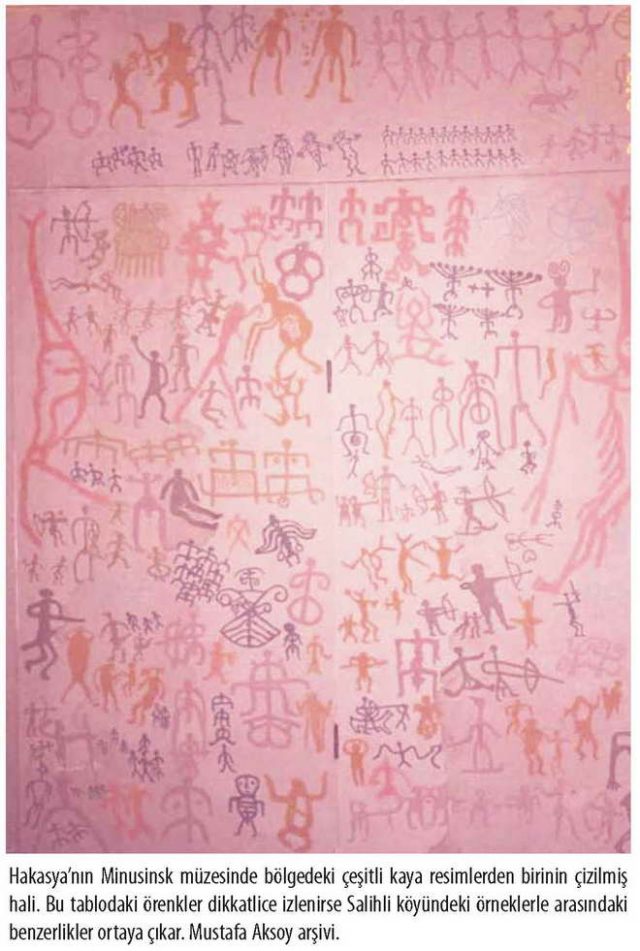 Hakasya’nın Minusinsk müzesinde bölgedeki çeşitli kaya resimlerden birinin çizilmiş
hali. Bu tablodaki örenkler dikkatlice izlenirse Salihli köyündeki örneklerle arasındaki
benzerlikler ortaya çıkar. Mustafa Aksoy arşivi.